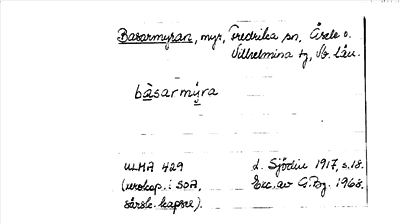 Basarmyran, myr, Fredrika sn, Åsele o.
Vilhelmina tg, Vb. län.
bàsarmýra
ULMA 429
(verskap. i SOA,
särsk. kapsel).
L. Sjödin 1917, s. 18.
Exc. av G. Bg. 1968.